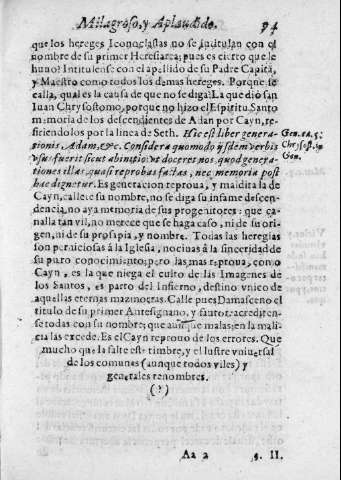 Milagroso, y Aplaudido. 94
que los hereges Iconoclastas no se intitulan con el
nombre de su primer Heresiarca; pues es cierto que le
huuo? Intitulense con el apellido de su Padre Capitã,
y Maestro como todos los demas hereges. Porque se
calla, qual es la causa de que no se diga? La que diò san
Iuan Chrysostomo, porque no hizo el Espiritu Santo
memoria de los descendientes de Adan por Cayn, re-
firiendolos por la linea de Seth. Hic est liber genera-
Gen. ca. 5.
tionis, Adam, &c. Considera quomodo ijsdem verbis
Chrysost. in
vsus fuerit sicut ab initio: vt doceret nos, quod genera-
Gen.
tiones illas, quasi reprobas factas, nec memoria post
hac dignetur. Es generacion reproua, y maldita la de
Cayn, callese su nombre, no se diga su infame descen-
dencia, no aya memoria de sus progenitores: que ca-
nalla tan vil, no merece que se haga caso, ni de su ori-
gen, ni de su prosapia, y nombre. Todas las heregias
son perniciosas à la Iglesia, nociuas à la sinceridad de
su puro conocimiento; pero la mas reproua, como
Cayn, es la que niega el culto de las Imagenes de
los Santos, es parto del Infierno, destino vnico de
aquellas eternas mazmorras. Calle pues Damasceno el
titulo de su primer Antesignano, y
se todas con su nombre; que aunque malas; en la mali-
cia las excede. Es el Cayn reprouo de los errores. Que
mucho que la falte este timbre, y el lustre vniuersal
de los comunes (aunque todos viles) y
generales renombres.
(?)
Aa 2 §. II.